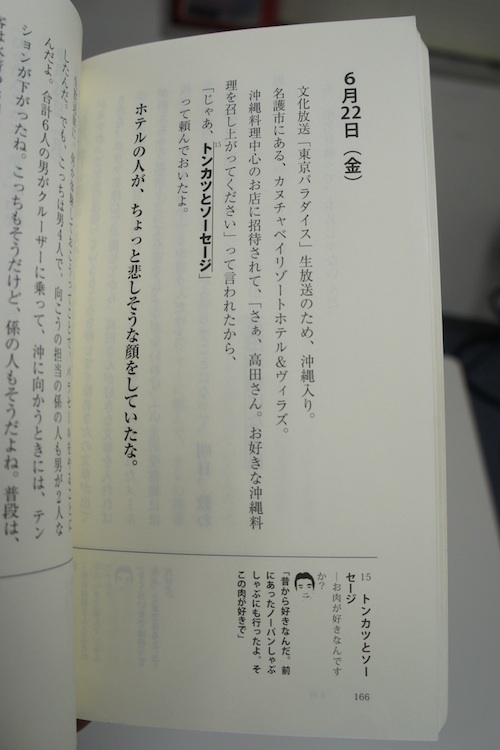 6月22日（金）
文化放送「東京パラダイス」生放送のため、沖縄入り。
名護市にある、カヌチャベイリゾートホテル＆ヴィラズ。
沖縄料理中心のお店に招待されて、「さぁ、高田さん。お好きな沖縄料
理を召し上がってください」って言われたから、
「じゃあ、トンカツとソーセージ」15
って頼んでおいたよ。
ホテルの人が、ちょっと悲しそうな顔をしていたな。
15 トンカツとソー
セージ
―お肉が好きなんです
か？
「昔から好きなんだ。前
にあったノーパンしゃぶ
しゃぶにも行ったよ。そ
この肉が好きで」
166
したんだ。でも、こっちは男4人で、向こうの担当の係の人も男が2人な
んだよ。合計6人の男がクルーザーに乗って、沖に向かうときには、テン
ションが下がったね。こっちもそうだけど、係の人もそうだよね。普段は、